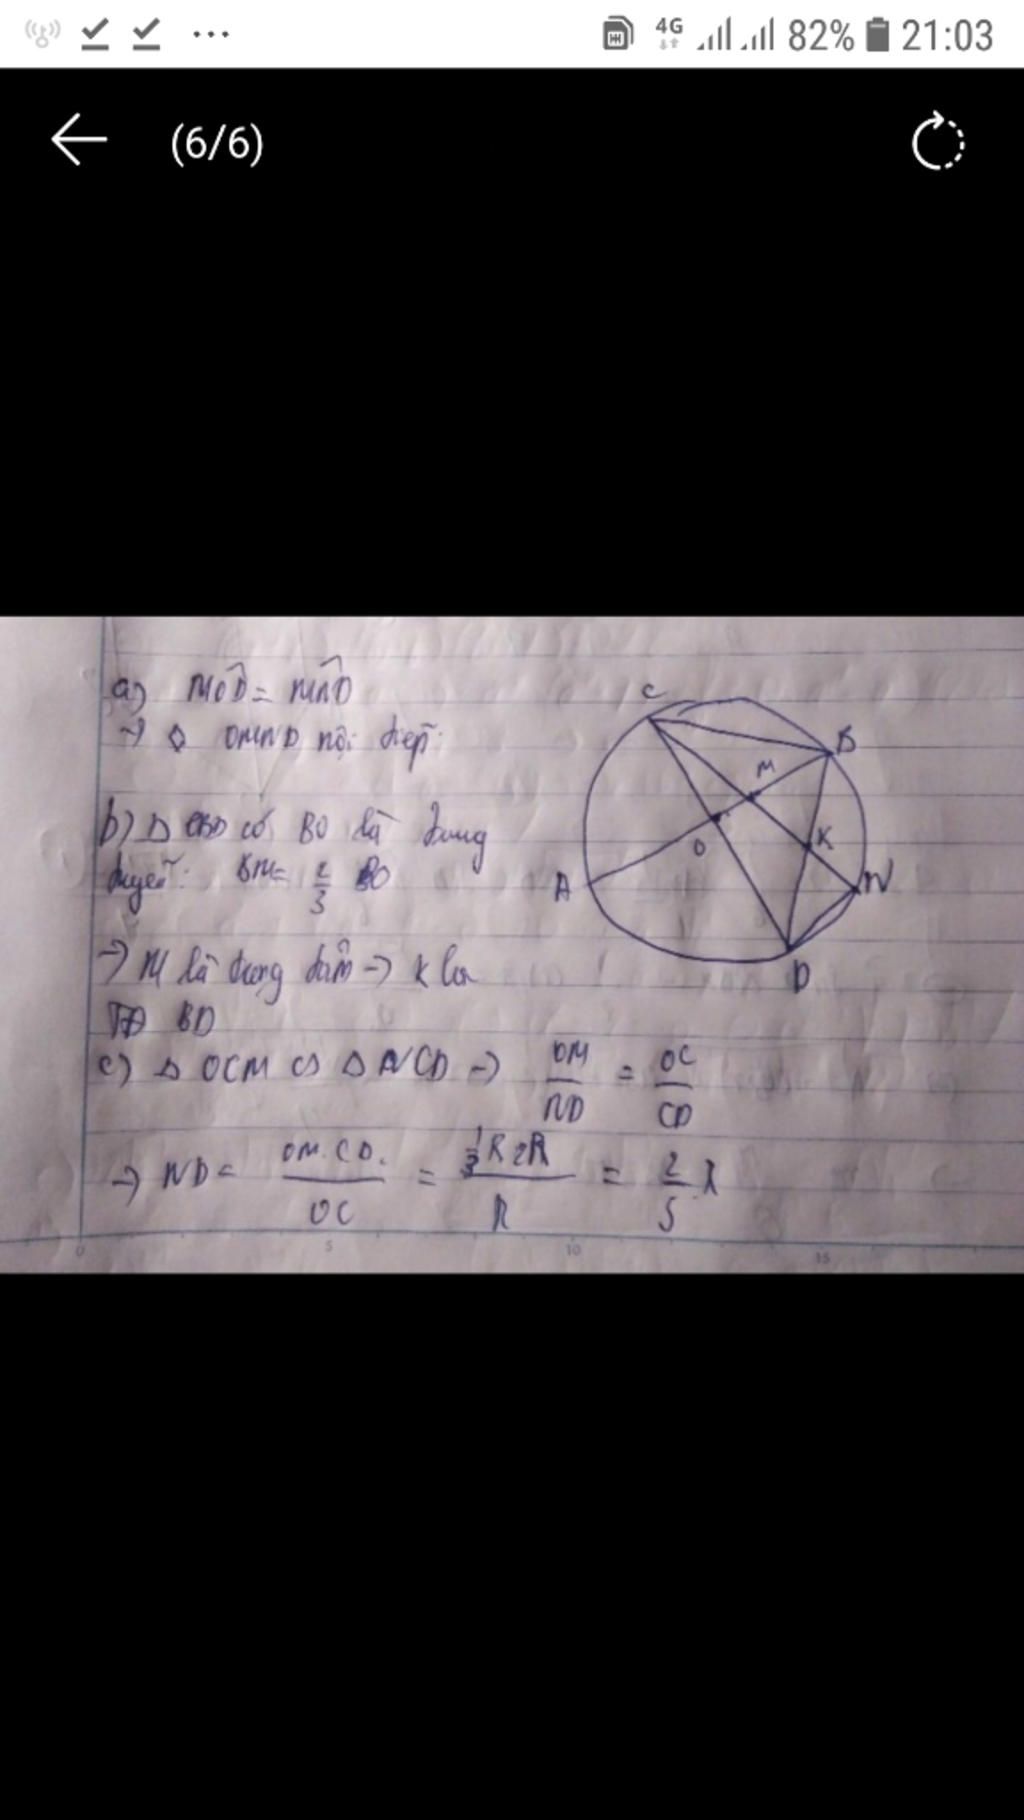 4G 82% 21:03
(6/6)
a) MOD = MND
→ ◊ OMND nội tiếp
b) Δ CBD có BO là trung
tuyến: BM = 2/3 BO
→ M là trọng tâm → K là
TĐ BD
c) Δ OCM ∽ Δ NCD → OM/ND = OC/CD
→ ND = OM.CD./OC = 1/3 R 2R/R =
C
B
M
O
K
A
N
D
0 5 10 15